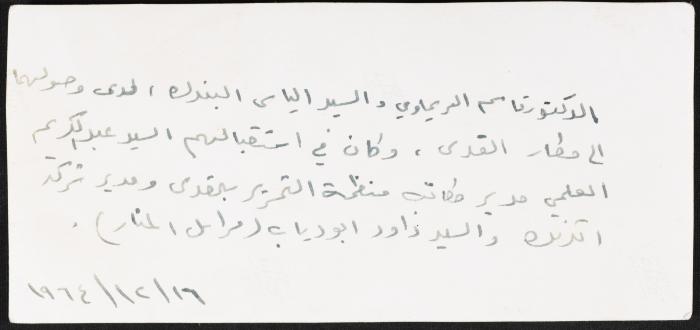 الدكتور قاسم الريماوي والسيد الياس البندك ، لدى وصولهما
الى مطار القدس ، وكان في استقبالهم السيد عبدالكريم
العلمي مدير مكاتب منظمة التحرير بالقدس ومدير شركة
والسيد داود ابودياب (مراسل المنار) .
١٩٦٤/١٢/١٦